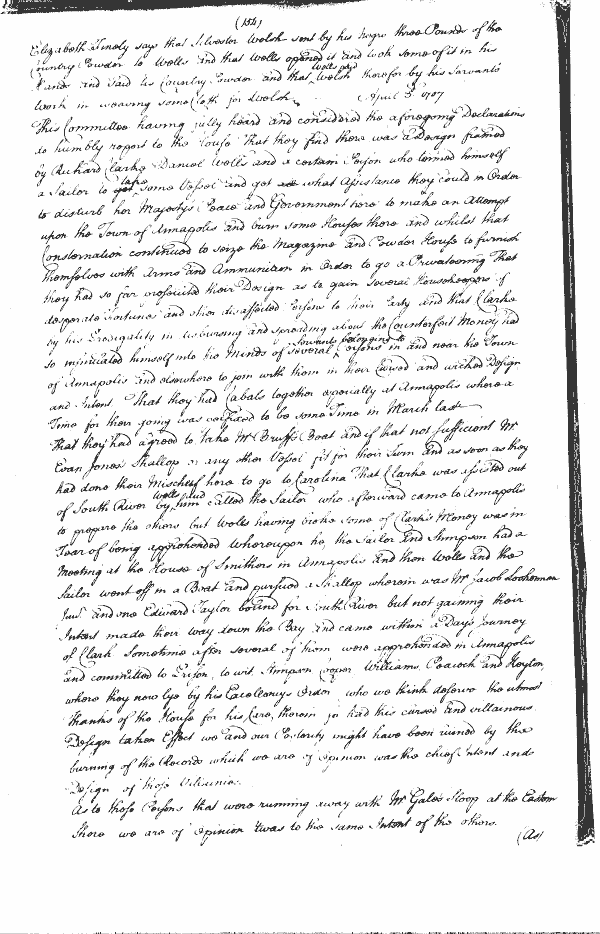 (154)
Elizabeth Tinely says that Silvester Welsh sent by his Negro three Pounds of the
Country Powder to Wells and that Wells opened it and took some of it in his
Hand and said its Country Powder and that Wells pd Welsh therefor by his Servants
work in weaving some Cloth for Welsh
April 3d 1707
This Committee having fully heard and considered the aforegoing Declarations
do humbly report to the House That they find there was a Design framed
by Richard Clarke Daniel Wells and a certain Person who termed himself
a Sailor to take some Vessel and get what Assistance they could in Order
to disturb her Majestys Peace and Government here to make an Attempt
upon the Town of Annapolis and burn some Houses there and whilst that
Consternation continued to seize the Magazine and Powder House to furnish
themselves with Arms and Ammunition in Order to go a Privateering That
they had so far prosecuted their Design as to gain several Housekeepers of
desperate Fortunes and other disaffected Persons to their Party And that Clarke
by his Prodigality in disbursing and spreading about the Counterfeit Money had
so insinuated himself into the Minds of several Servants belonging to Persons in and near the Town
of Annapolis and elsewhere to join with them in their Cursed and wicked Design
and Intent. That they had Cabals together especially at Annapolis where a
Time for their going was to be some Time in March last
That they had agreed to take Mr Bruffs Boat and if that not sufficient Mr
Evan Jones Shallop or any other Vessel fit for their Turn and as soon as they
had done their Mischief here to go to Carolina That Clarke was assisted out
of South River by Wells and him called the Sailor who afterward came to Annapolis
to prepare the others but Wells having broke some of Clark's Money was in
Fear of being apprehended Whereupon he, the Sailor and Simpson had a
Meeting at the House of Smithers in Annapolis and then Wells and the
Sailor went off in a Boat and pursued a Shallop wherein was Mr Jacob Lockerman
Junr and one Edward Taylor bound for South River but not gaining their
Intent made their way down the Bay and came within a Days Journey
of Clark Sometime after several of them were apprehended in Annapolis
and committed to Prison, to wit, Simpson Cooper Williams, Peacock and Keyton
where they now lye by his Excellencys Order who we think deserve the utmost
thanks of the House for his Care, therein for had this cursed and villainous
Design taken Effect we and our Posterity might have been ruined by the
burning of the Records which we are of Opinion was the chief Intent and
Design of those Villains.
As to those Persons that were running away with Mr Gales Sloop at the Eastern
Shore we are of Opinion 'twas to the same Intent of the others.
(As)